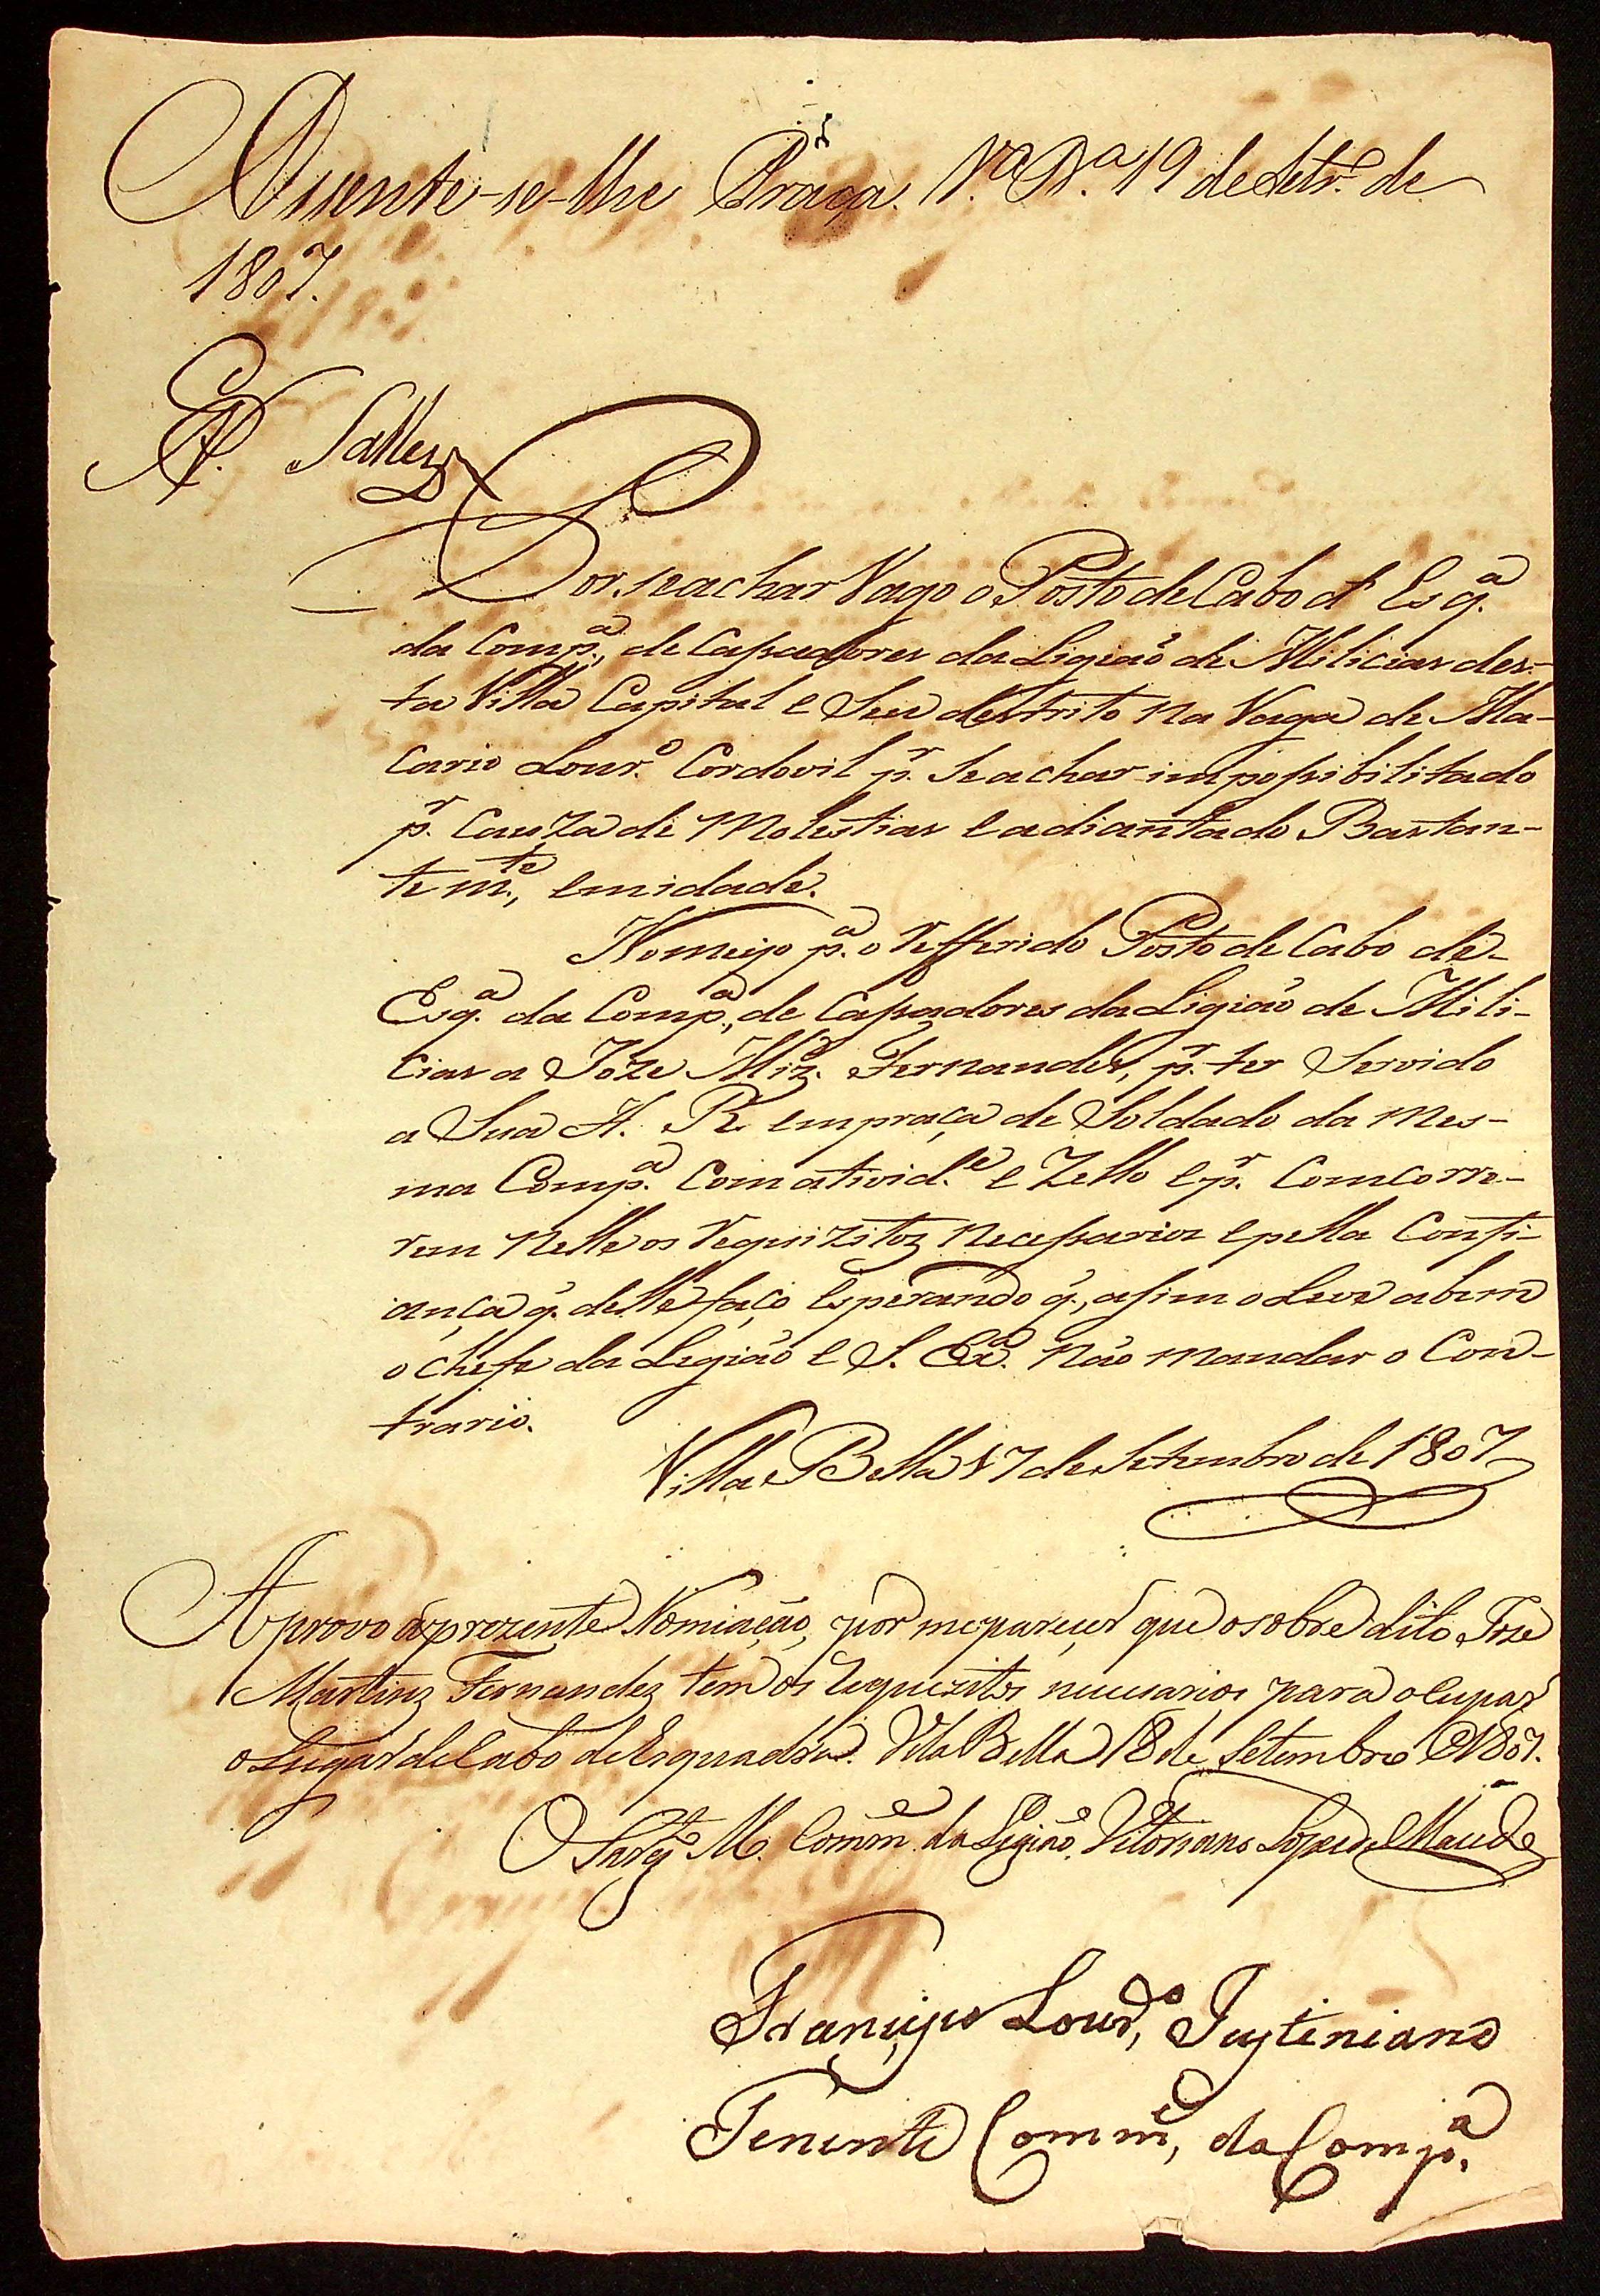 Assente-se-lhe Praça. V.ª B.ª 19 de Setr.º de
1807.
Salles
Por se achar Vago o Posto de Cabo d' Esq.ª
da Comp.ª, de Cassadores da Ligiaõ de Milicias des-
ta Villa Capital e Seu destrito na Vaga de Ma-
cario Lour.º Cordovil p.r Se achar impossibilitado
p.r Cauza de Molestias e adiantado Bastan-
tem.te, em idade.
Nomeyo p.ª o Refferido Posto de Cabo de
Esq.ª da Comp.ª, de Cassadores da Ligiaõ de Mili-
cias a Joze Miz. Fernandes, p.r ter Servido
a Sua A. R. em praça de Soldado da Mes-
ma Comp.ª Com ativid.e e Zello e p.r Comcorre-
rem Nelle os Requizitoz Necessarios e pella Confi-
ança q. delle faço Esperando q., asim o Leve a bem
o Chefe da Legiaõ e S. Ex.ª Naõ mandar o Con-
trario.
Villa Bella 17 de Setembro de 1807
Aprovo a prezente Nomiação, por me pareçer que o sobredito Joze
Martinz Fernandez tem os requezitos necesarios para ocupar
o Lugar de Cabo de Esquadra. Vila Bella 18 de Setembro 1807.
O Sarg.to M. Comm.e da Legiaõ, Vitoriano Lopes de Maced.º
Françisco Lour.º, Justiniano
Tenente Comm.e, da Comp.ª